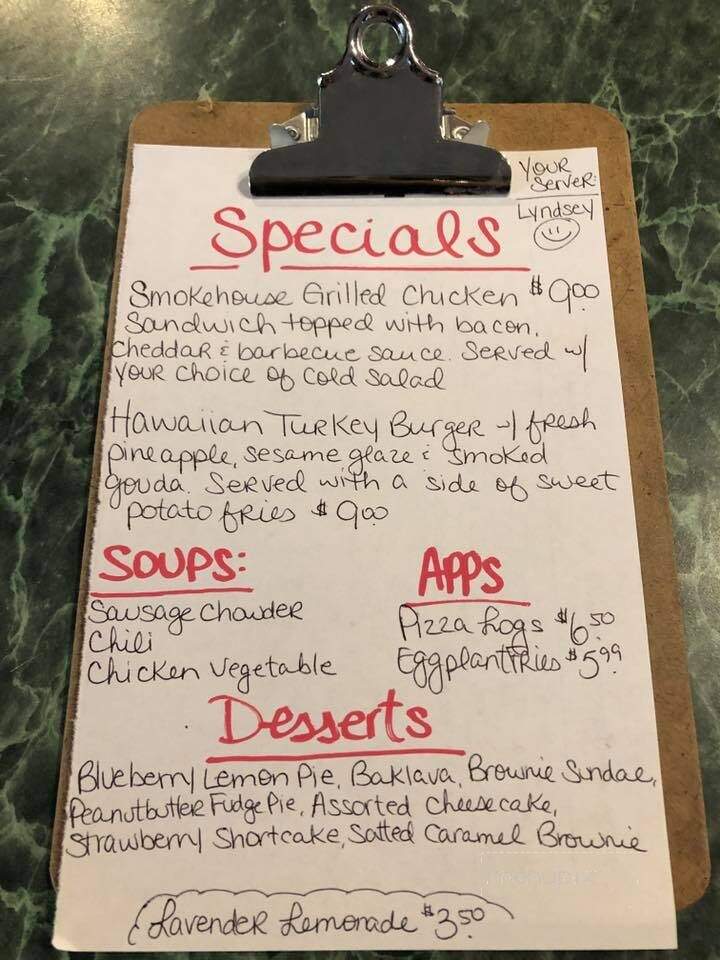 Your
Server:
Lyndsey
Specials
Smokehouse Grilled Chicken $9.00
Sandwich topped with bacon,
cheddar & barbecue sauce. Served w/
your choice of cold salad
Hawaiian Turkey Burger w/ fresh
pineapple, sesame glaze & smoked
gouda. Served with a side of sweet
potato fries $9.00
Soups:
Sausage Chowder
Chili
Chicken Vegetable
Apps
Pizza Logs $6.50
Eggplant Fries $5.99
Desserts
Blueberry Lemon Pie, Baklava, Brownie Sundae,
Peanutbutter Fudge Pie, Assorted Cheesecake,
Strawberry Shortcake, Salted Caramel Brownie
Lavender Lemonade $3.50